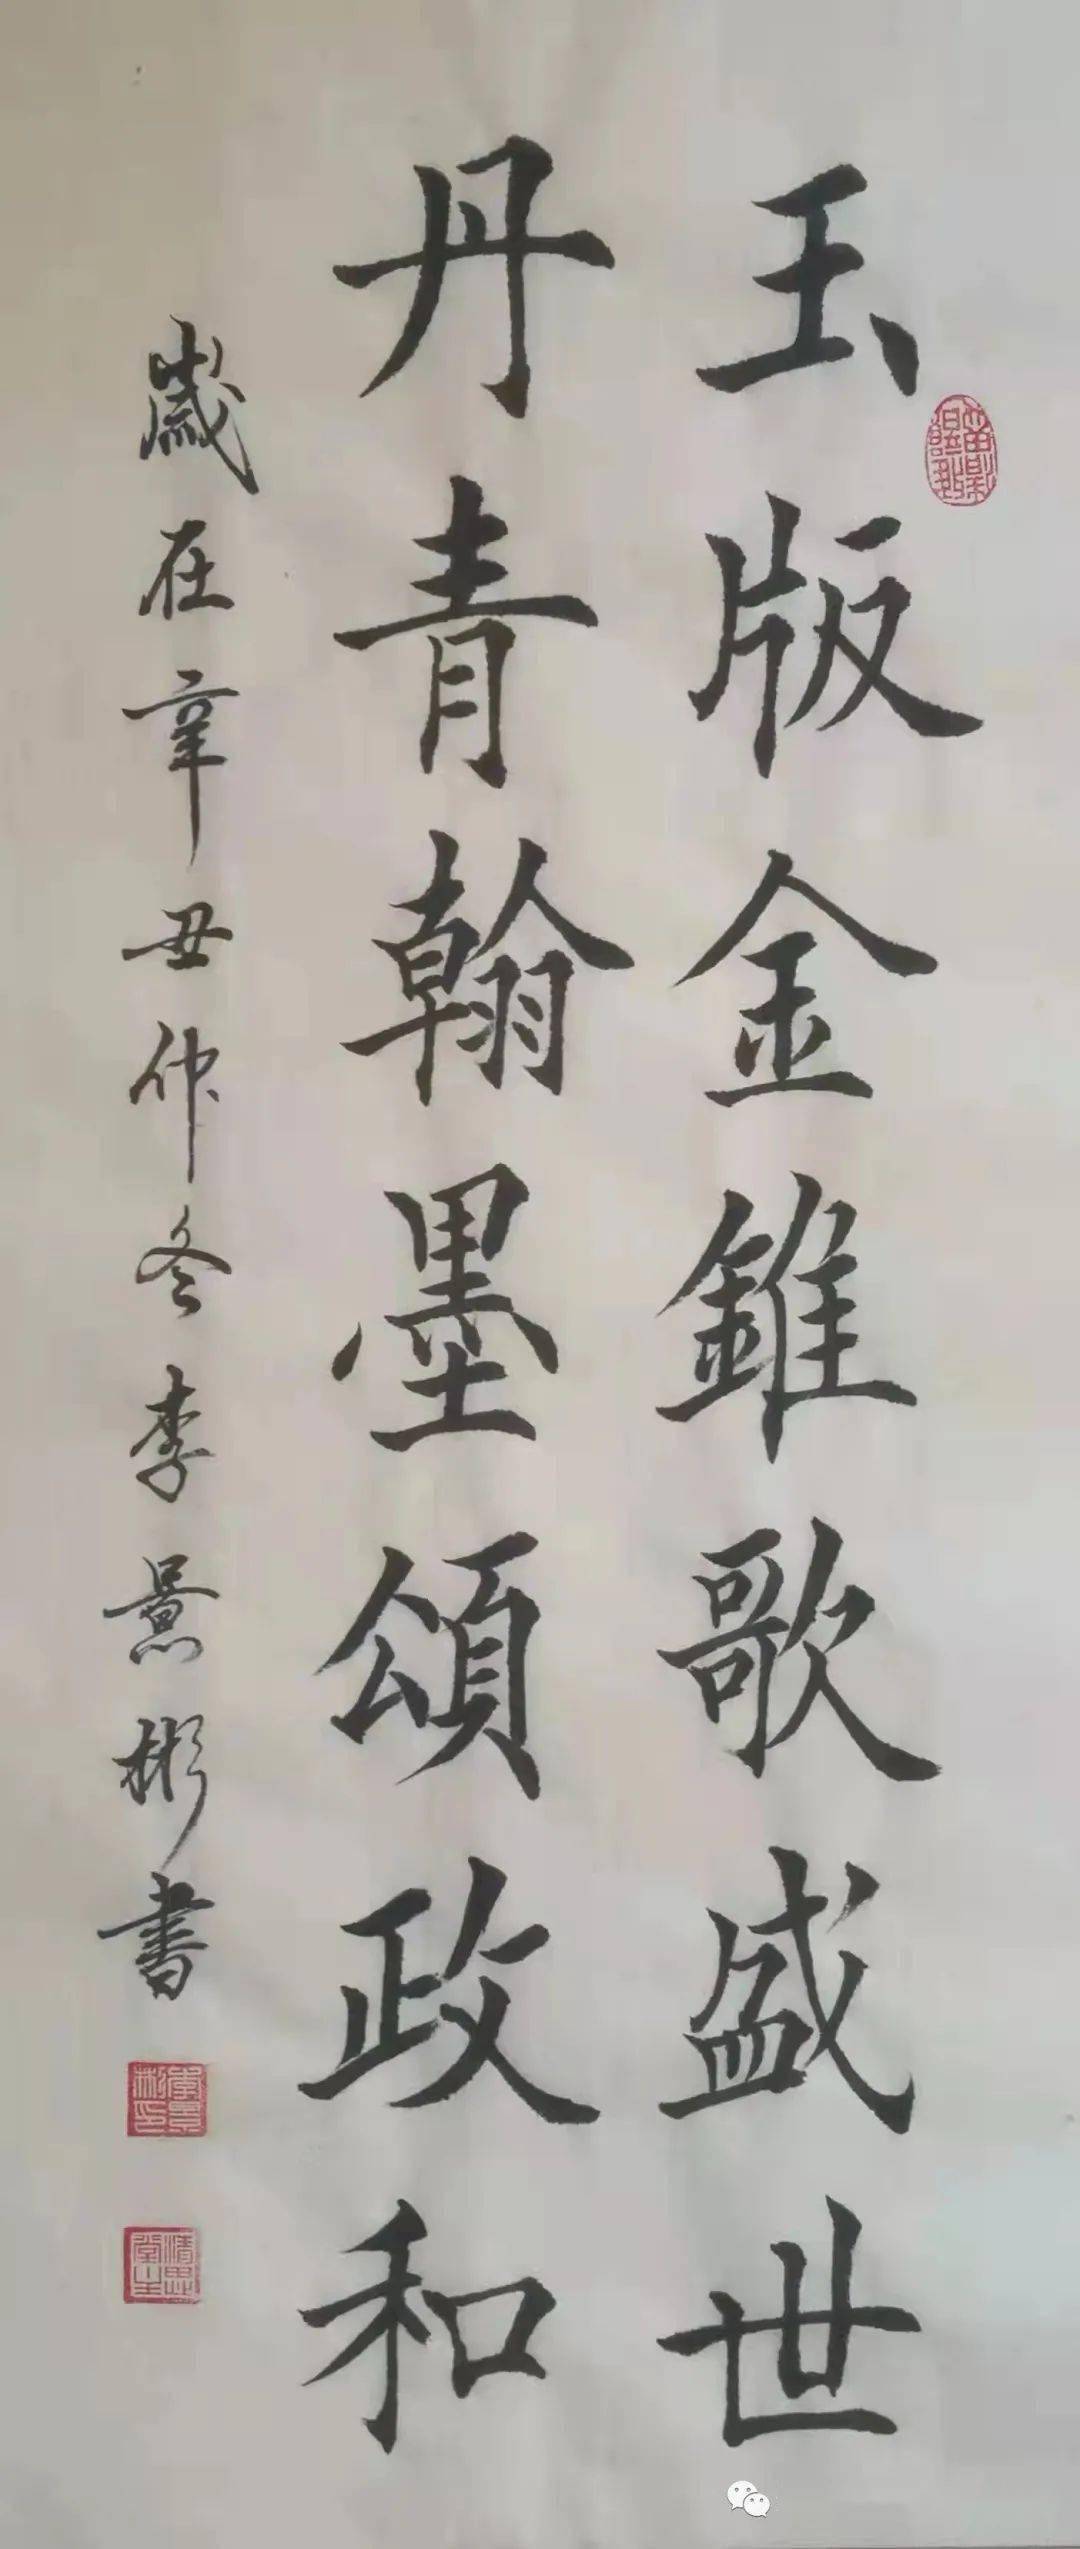 玉版金錐歌盛世
丹青翰墨頌政和
歲在辛丑仲冬李景彬書
李景彬印